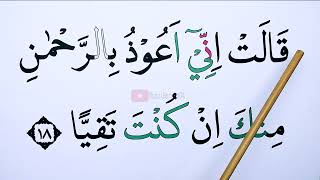 قَالَتْ اِنِّيْٓ اَعُوْذُ بِالرَّحْمٰنِ
مِنْكَ اِنْ كُنْتَ تَقِيًّا ﴿١٨﴾